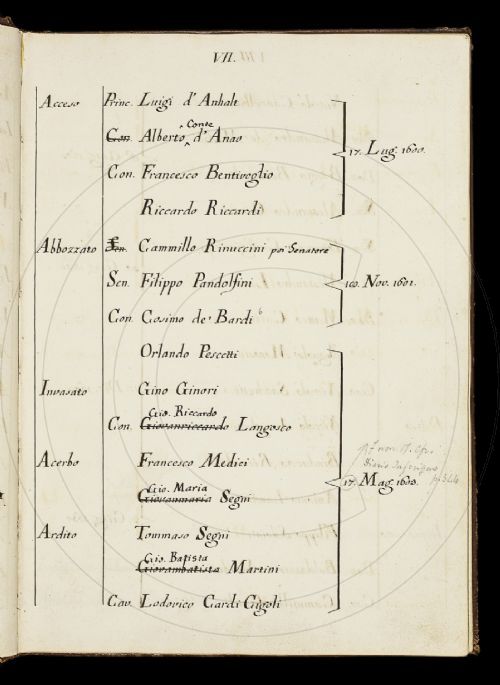 VII.
Acceso Princ. Luigi d' Anhalt
Con. Alberto Conte d' Anao
17. Lug. 1600.
Con. Francesco Bentivoglio
Riccardo Riccardi
Abbozzato Sen. Cammillo Rinuccini poi Senatore
Sen. Filippo Pandolfini 10. Nov. 1601.
Con. Cosimo de' Bardi
Orlando Pescetti
Invasato Gino Ginori
Gio. Riccardo
Con. Giovanriccardo Langosco
Acerbo Francesco Medici
17. Mag. 1603.
Gio. Maria
Giovanmaria Segni
Ardito Tommaso Segni
Gio. Batista
Giovambatista Martini
Cav. Lodovico Cardi Cigoli